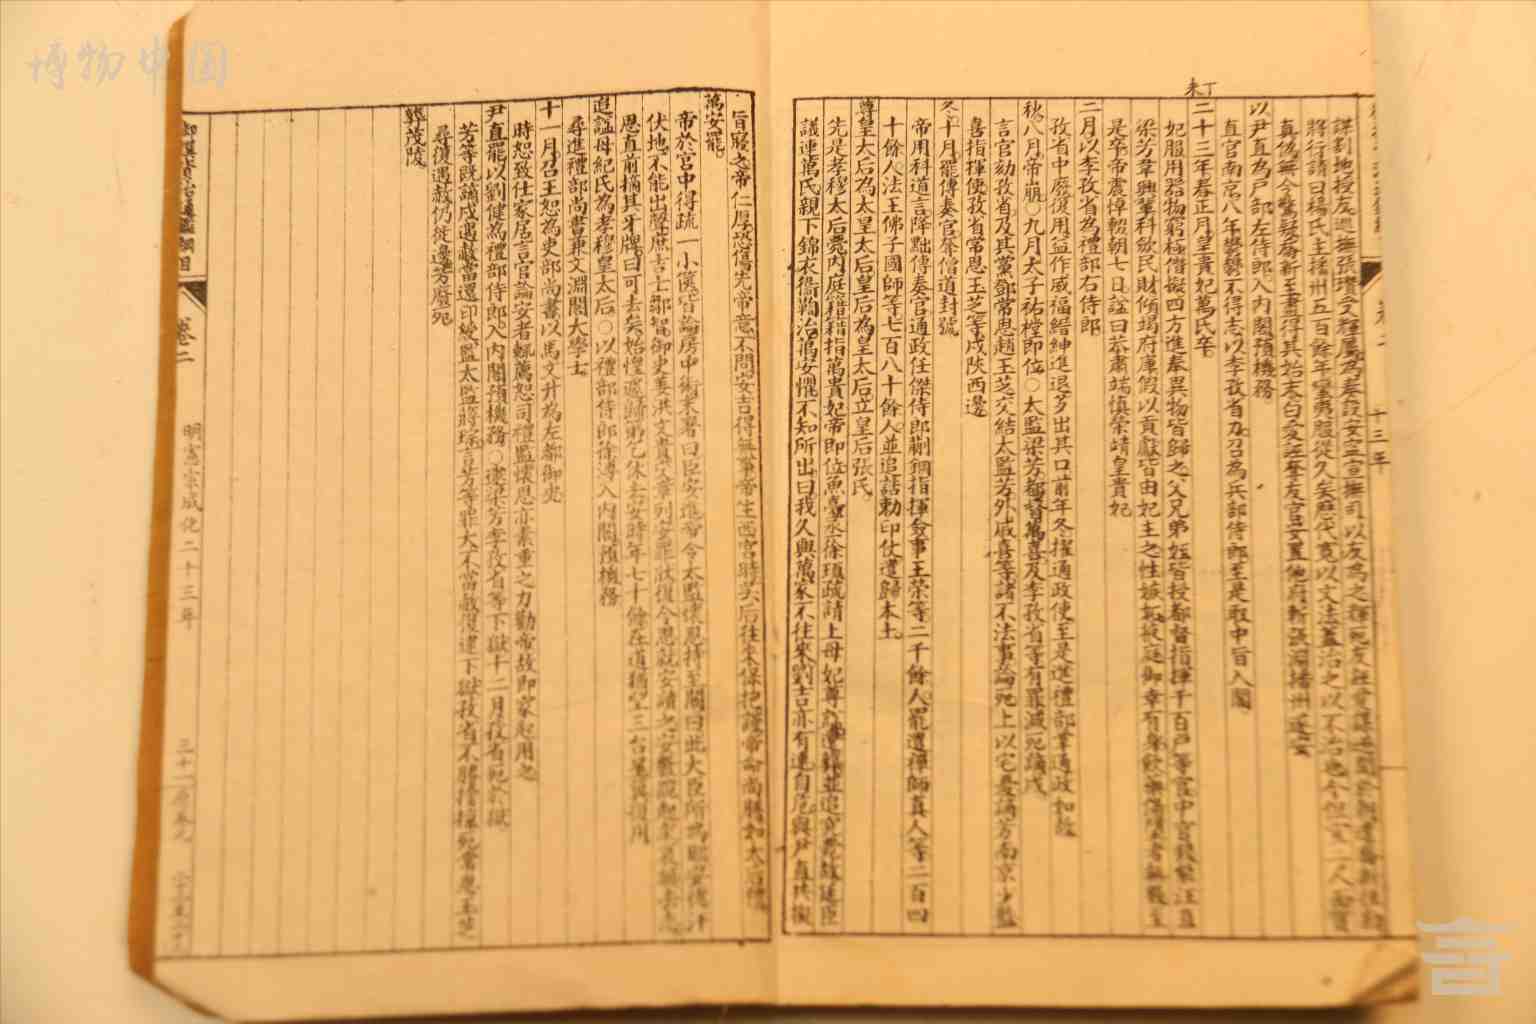 博物中国
丁未
將行請曰楊氏主播州五百餘年蠻夷服從久矣
以尹直為戶部左侍郎入內閣預機務
直官南京八年鬱鬱不得志以李孜省力召為兵部侍郎至是取中旨入閣
二十三年春正月皇貴妃萬氏卒
妃服用器物窮極僭擬四方進奉異物皆歸之父兄弟姪皆授都督指揮千百戶等官
梁芳韋興輩科斂民財傾竭府庫假以貢獻皆由妃主之
是卒帝震悼輟朝七日諡曰恭肅端慎榮靖皇貴妃
二月以李孜省為禮部右侍郎
孜省中廢復用益作威福縉紳進退多出其口前年冬擢通政使至是進禮部掌通政如故
秋八月帝崩○九月太子祐樘即位○太監梁芳都督萬喜及李孜省等有罪減死謫戍
言官劾孜省及其黨鄧常恩趙玉芝交結太監芳外戚喜等諸不法事論死上以宅憂謫芳南京少監
喜指揮使孜省常恩玉芝等戍陝西邊
冬十月罷傳奉官奪僧道封號
帝用科道言降黜傳奉官通政任傑侍郎蒯鋼指揮僉事王榮等二千餘人罷遣禪師真人等二百四
十餘人法王佛子國師等七百八十餘人並追誥勅印仗遣歸本土
尊皇太后為太皇太后皇后為皇太后立皇后張氏
先是孝穆太后薨內庭籍籍指萬貴妃帝即位魚臺丞徐頊疏請上母妃尊
議逮萬氏親下錦衣衛鞫治萬安懼不知所出曰我久與萬家不往來劉吉亦有連自危與尹直共擬
旨寢之帝仁厚恐傷先帝意不問安吉得無事帝生西宮時吳后往來保抱護帝命尚膳如太后禮
萬安罷
帝於宮中得疏一小篋皆論房中術末署曰臣安進帝令太監懷恩持至閣曰此大臣所為耶安愧汗
伏地不能出聲庶吉士鄒智御史姜洪文貴交章列安罪狀復令恩就安讀之
恩直前摘其牙牌曰可去矣始惶遽歸第乞休去安時年七十餘在道猶望三台星冀復用
追諡母紀氏為孝穆皇太后○以禮部侍郎徐溥入內閣預機務
尋進禮部尚書兼文淵閣大學士
十一月召王恕為吏部尚書以馬文升為左都御史
時恕致仕家居言官論安者輒薦恕司禮監懷恩亦素重之力勸帝故即家起用之
尹直罷以劉健為禮部侍郎入內閣預機務○逮梁芳李孜省等下獄十二月孜省死於獄
芳等既謫戍遇赦當還印綬監太監蔣琮言芳等罪大不當赦復逮下獄孜省不勝搒掠死常恩玉芝
尋復遇赦仍徙邊芳廢死
葬茂陵
御撰資治通鑑綱目
卷二
明憲宗成化二十三年
三十一